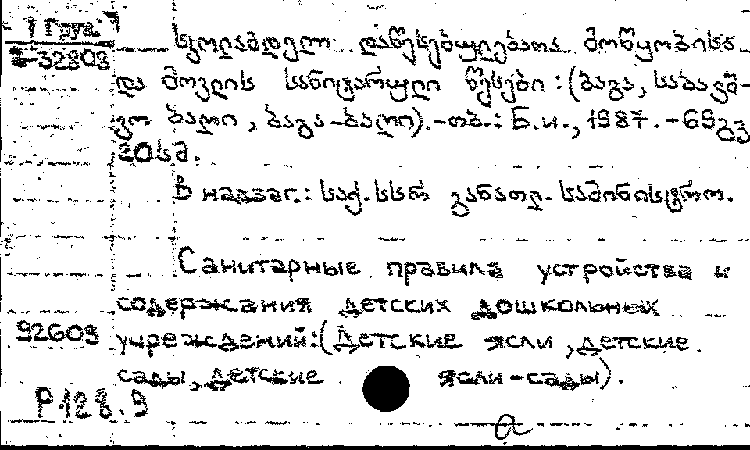 1 Груз.
2-32803
სკოლამდელ დაწესებულებათა მოწყობისა
და მოვლის სანიტარული წესები : (ბაგა, საბავშ-
ვო ბაღი, ბაგა-ბაღი). - თბ.: Б.и., 1987. - 69გვ
20სმ.
В надзаг.: საქ. სსრ განათლ. სამინისტრო.
Санитарные правила устройства и
содержания детских дошкольных
92609 учреждений: (Детские ясли, детские
сады, детские ясли-сады).
Р128.9